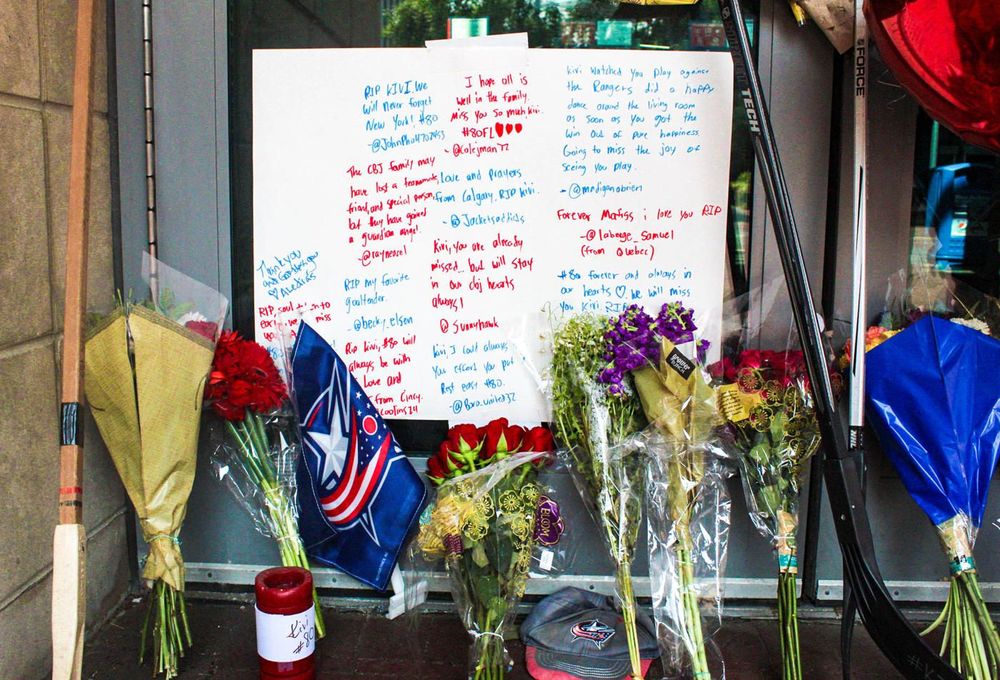 RIP KIVI. We
will never forget
New York! #80
I hope all is
well in the family.
miss you so much kivi.
#80FL
- @kalejman72
Kivi watched you play against
the Rangers did a happy
dance around the living room
as soon as you got the
win out of pure happiness.
Going to miss the joy of
seeing you play.
- @madiganobrien
The CBJ family may
have lost a teammate,
friend, and special person,
but they have gained
a guardian angel.
Love and prayers
from Calgary. RIP Kivi.
- @Jacketsaddicts
Forever Matiss i love you RIP
- @laberge_samuel
(from Quebec)
Kivi, you are already
missed.. but will stay
in our cbj hearts
always!
@ Sunnyhawk
Thank you
RIP my favorite
goaltender.
- @becky_elsen
#80 forever and always in
our hearts ♡. We will miss
you Kivi
RIP,
Rip Kivi, #80 will
always be with
Love and
from Cincy.
Kivi I
always
you
put
Rest easy #80.
- @Bora.united32
TECH
FORCE
BLOOM
Kivi
#80